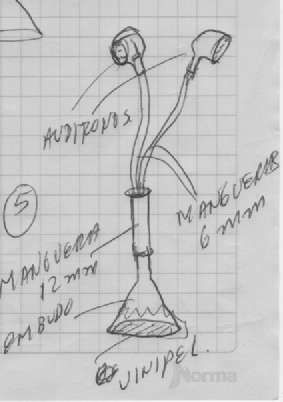 AUDIFONOS
5
MANGUERAS
6 mm
MANGUERA
12 mm
EMBUDO
VINIPEL.
Norma